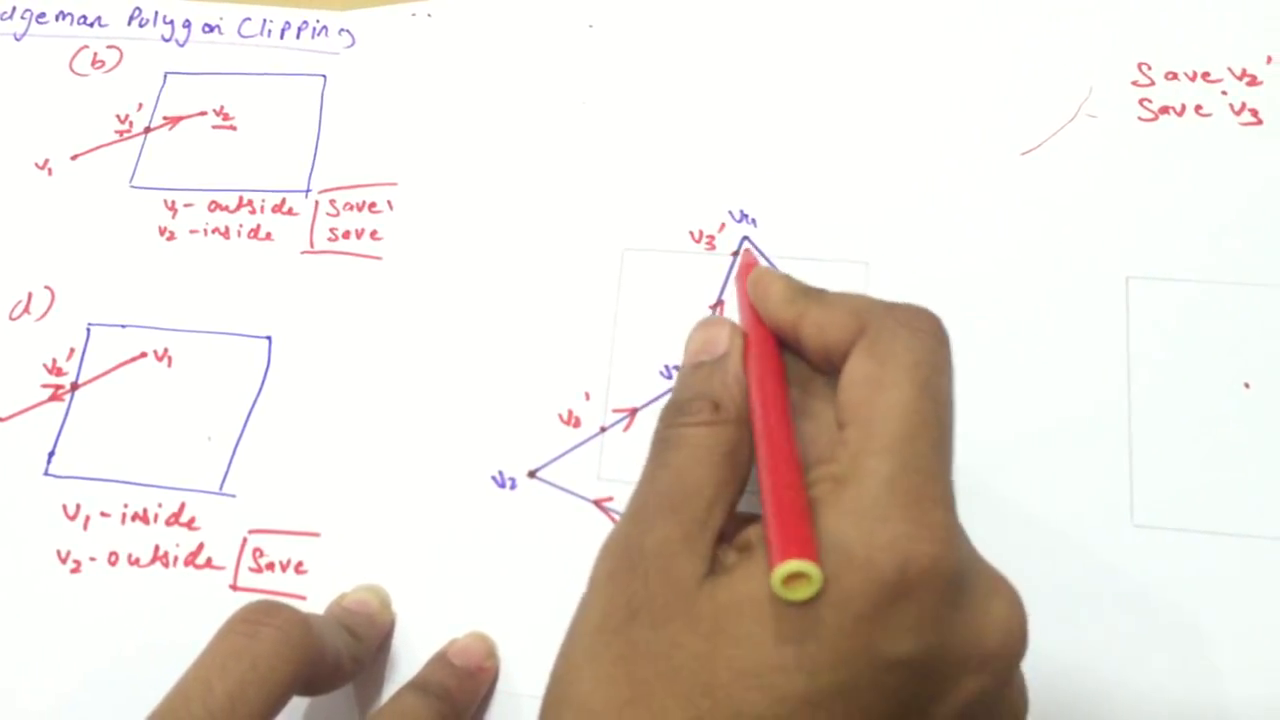 dgeman Polygon Clipping
(b)
v1'
v2
v1
v1 - outside
save
v2 - inside
save
d)
v2'
v1
v1 - inside
v2 - outside
save
Save v2'
Save v3
v4
v3'
v2'
v2